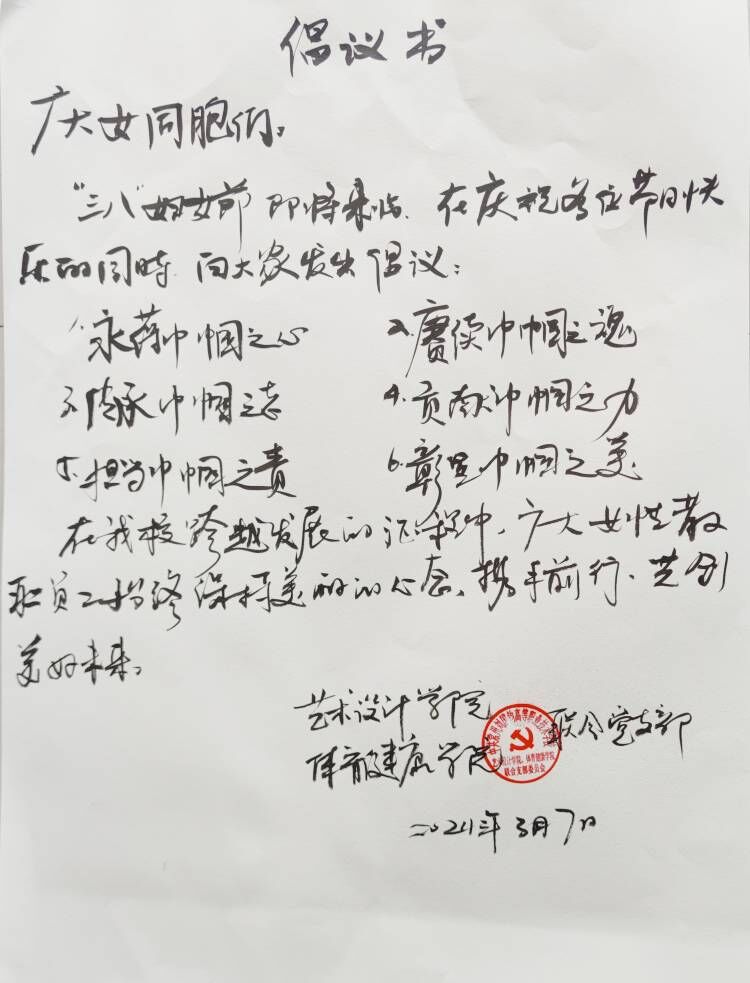 倡议书
广大女同胞们：
“三八”妇女节即将来临，在庆祝各位节日快
乐的同时，向大家发出倡议：
1.永葆巾帼之心 2.赓续巾帼之魂
3.传承巾帼之志 4.贡献巾帼之力
5.担当巾帼之责 6.彰显巾帼之美
在我校跨越发展的征程中，广大女性教
职员工始终保持美丽的心态，携手前行，共创
美好未来。
艺术设计学院
体育健康学院
联合党支部
体育健康学院
联合支部委员会
二〇21年3月7日